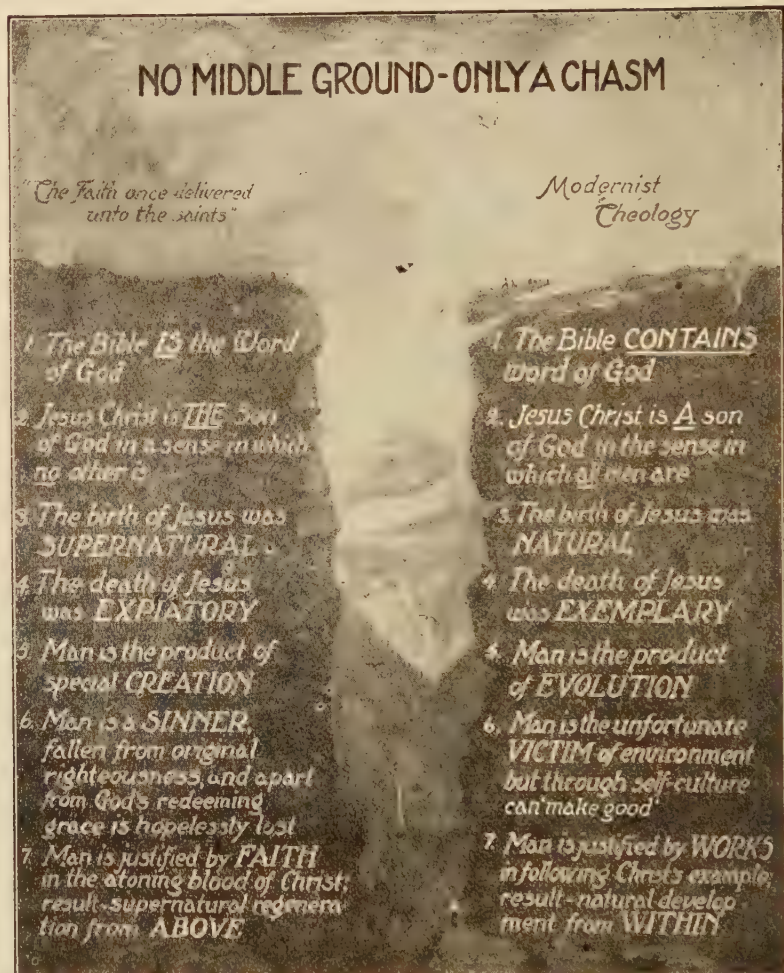 NO MIDDLE GROUND-ONLY A CHASM
"The Faith once delivered
unto the saints"
1. The Bible IS the Word
of God
2. Jesus Christ is THE Son
of God in a sense in which
no other is
3. The birth of Jesus was
SUPERNATURAL
4. The death of Jesus
was EXPIATORY
5. Man is the product of
special CREATION
6. Man is a SINNER,
fallen from original
righteousness, and apart
from God's redeeming
grace is hopelessly lost
7. Man is justified by FAITH
in the atoning blood of Christ;
result-supernatural regenera
tion from ABOVE
Modernist
Theology
1. The Bible CONTAINS
Word of God
2. Jesus Christ is A son
of God in the sense in
which all men are
3. The birth of Jesus was
NATURAL
4. The death of Jesus
was EXEMPLARY
5. Man is the product
of EVOLUTION
6. Man is the unfortunate
VICTIM of environment
but through self-culture
can "make good"
7. Man is justified by WORKS
in following Christ's example;
result-natural develop-
ment from WITHIN